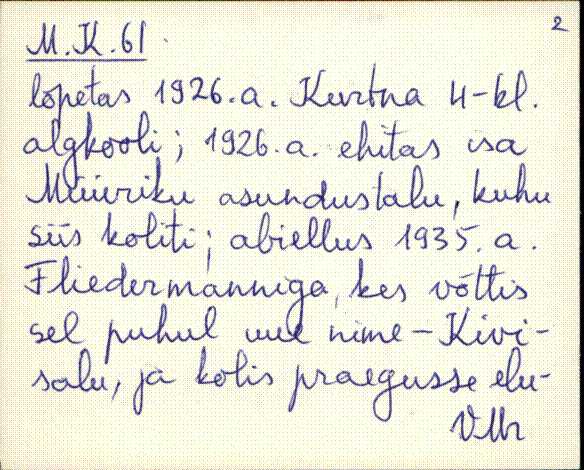 2
M.K.61.
lõpetas 1926.a. Kurtna 4-kl.
algkooli; 1926.a. ehitas isa
Müüriku asundustalu, kuhu
siis koliti; abiellus 1935.a.
Fliedermanniga, kes võttis
sel puhul uue nime - Kivi-
salu, ja kolis praegusse elu-